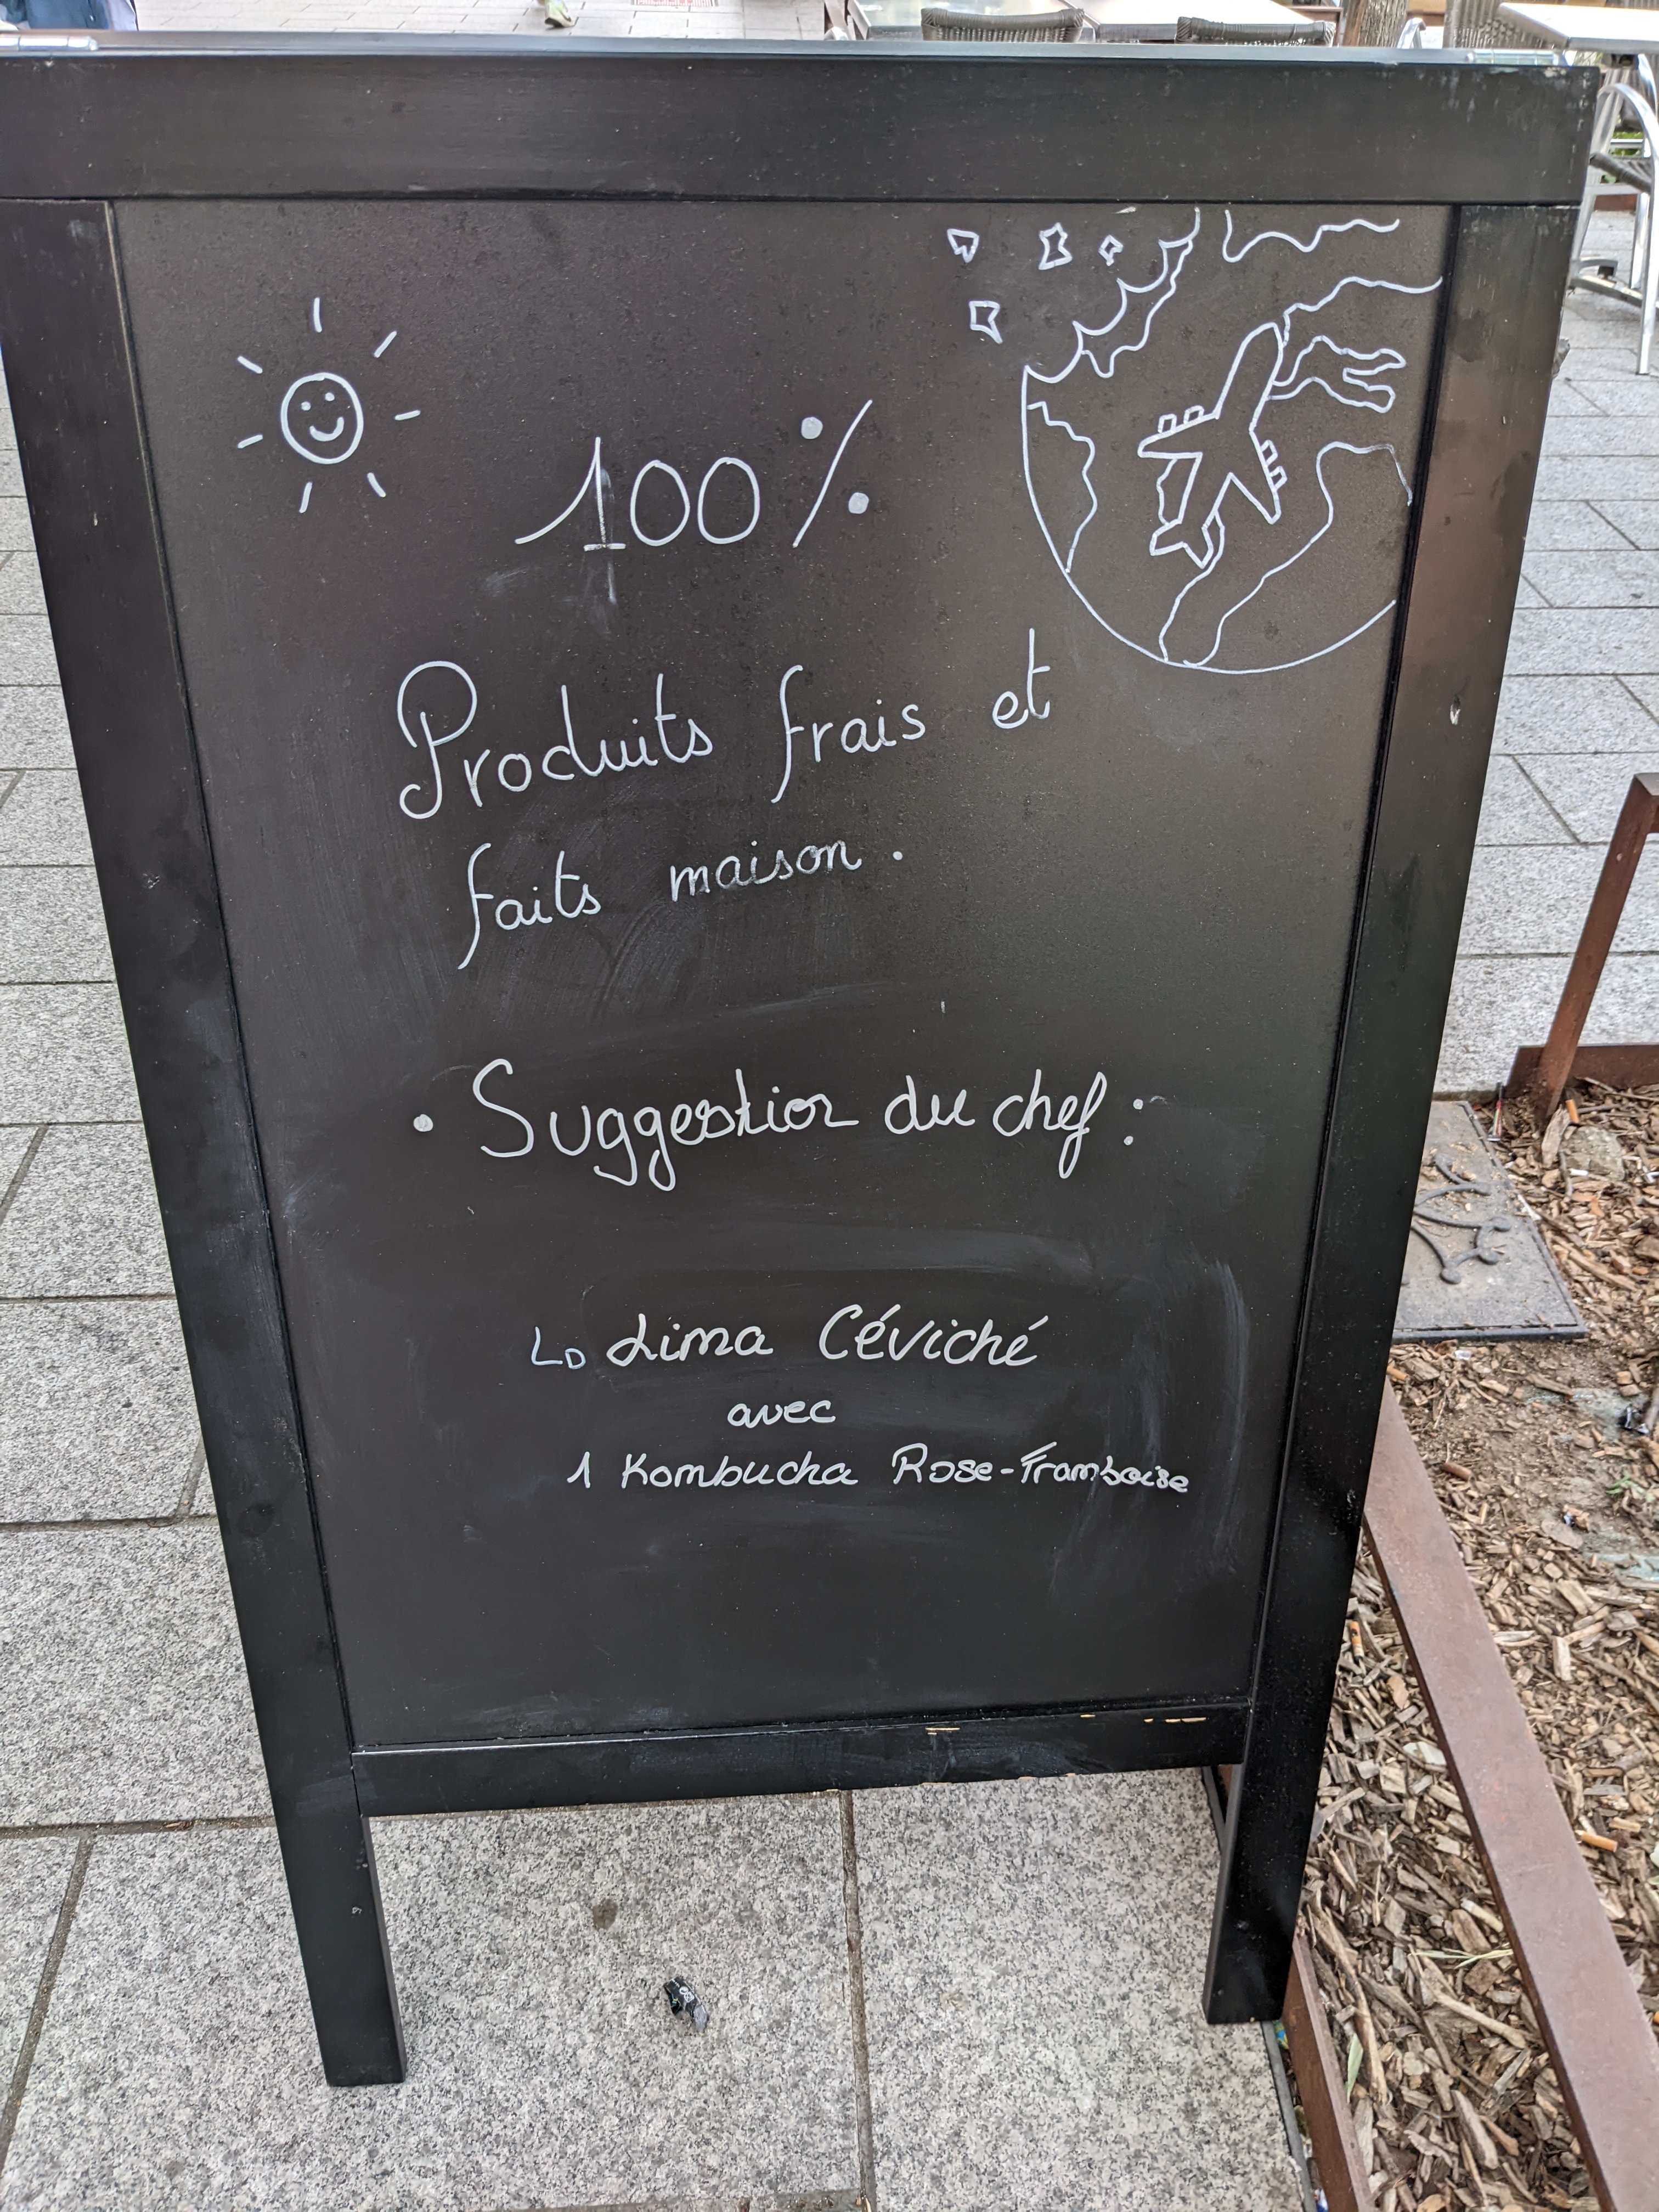 100%
Produits frais et
faits maison.
• Suggestion du chef :
↳ Lima Céviché
avec
1 Kombucha Rose-Framboise